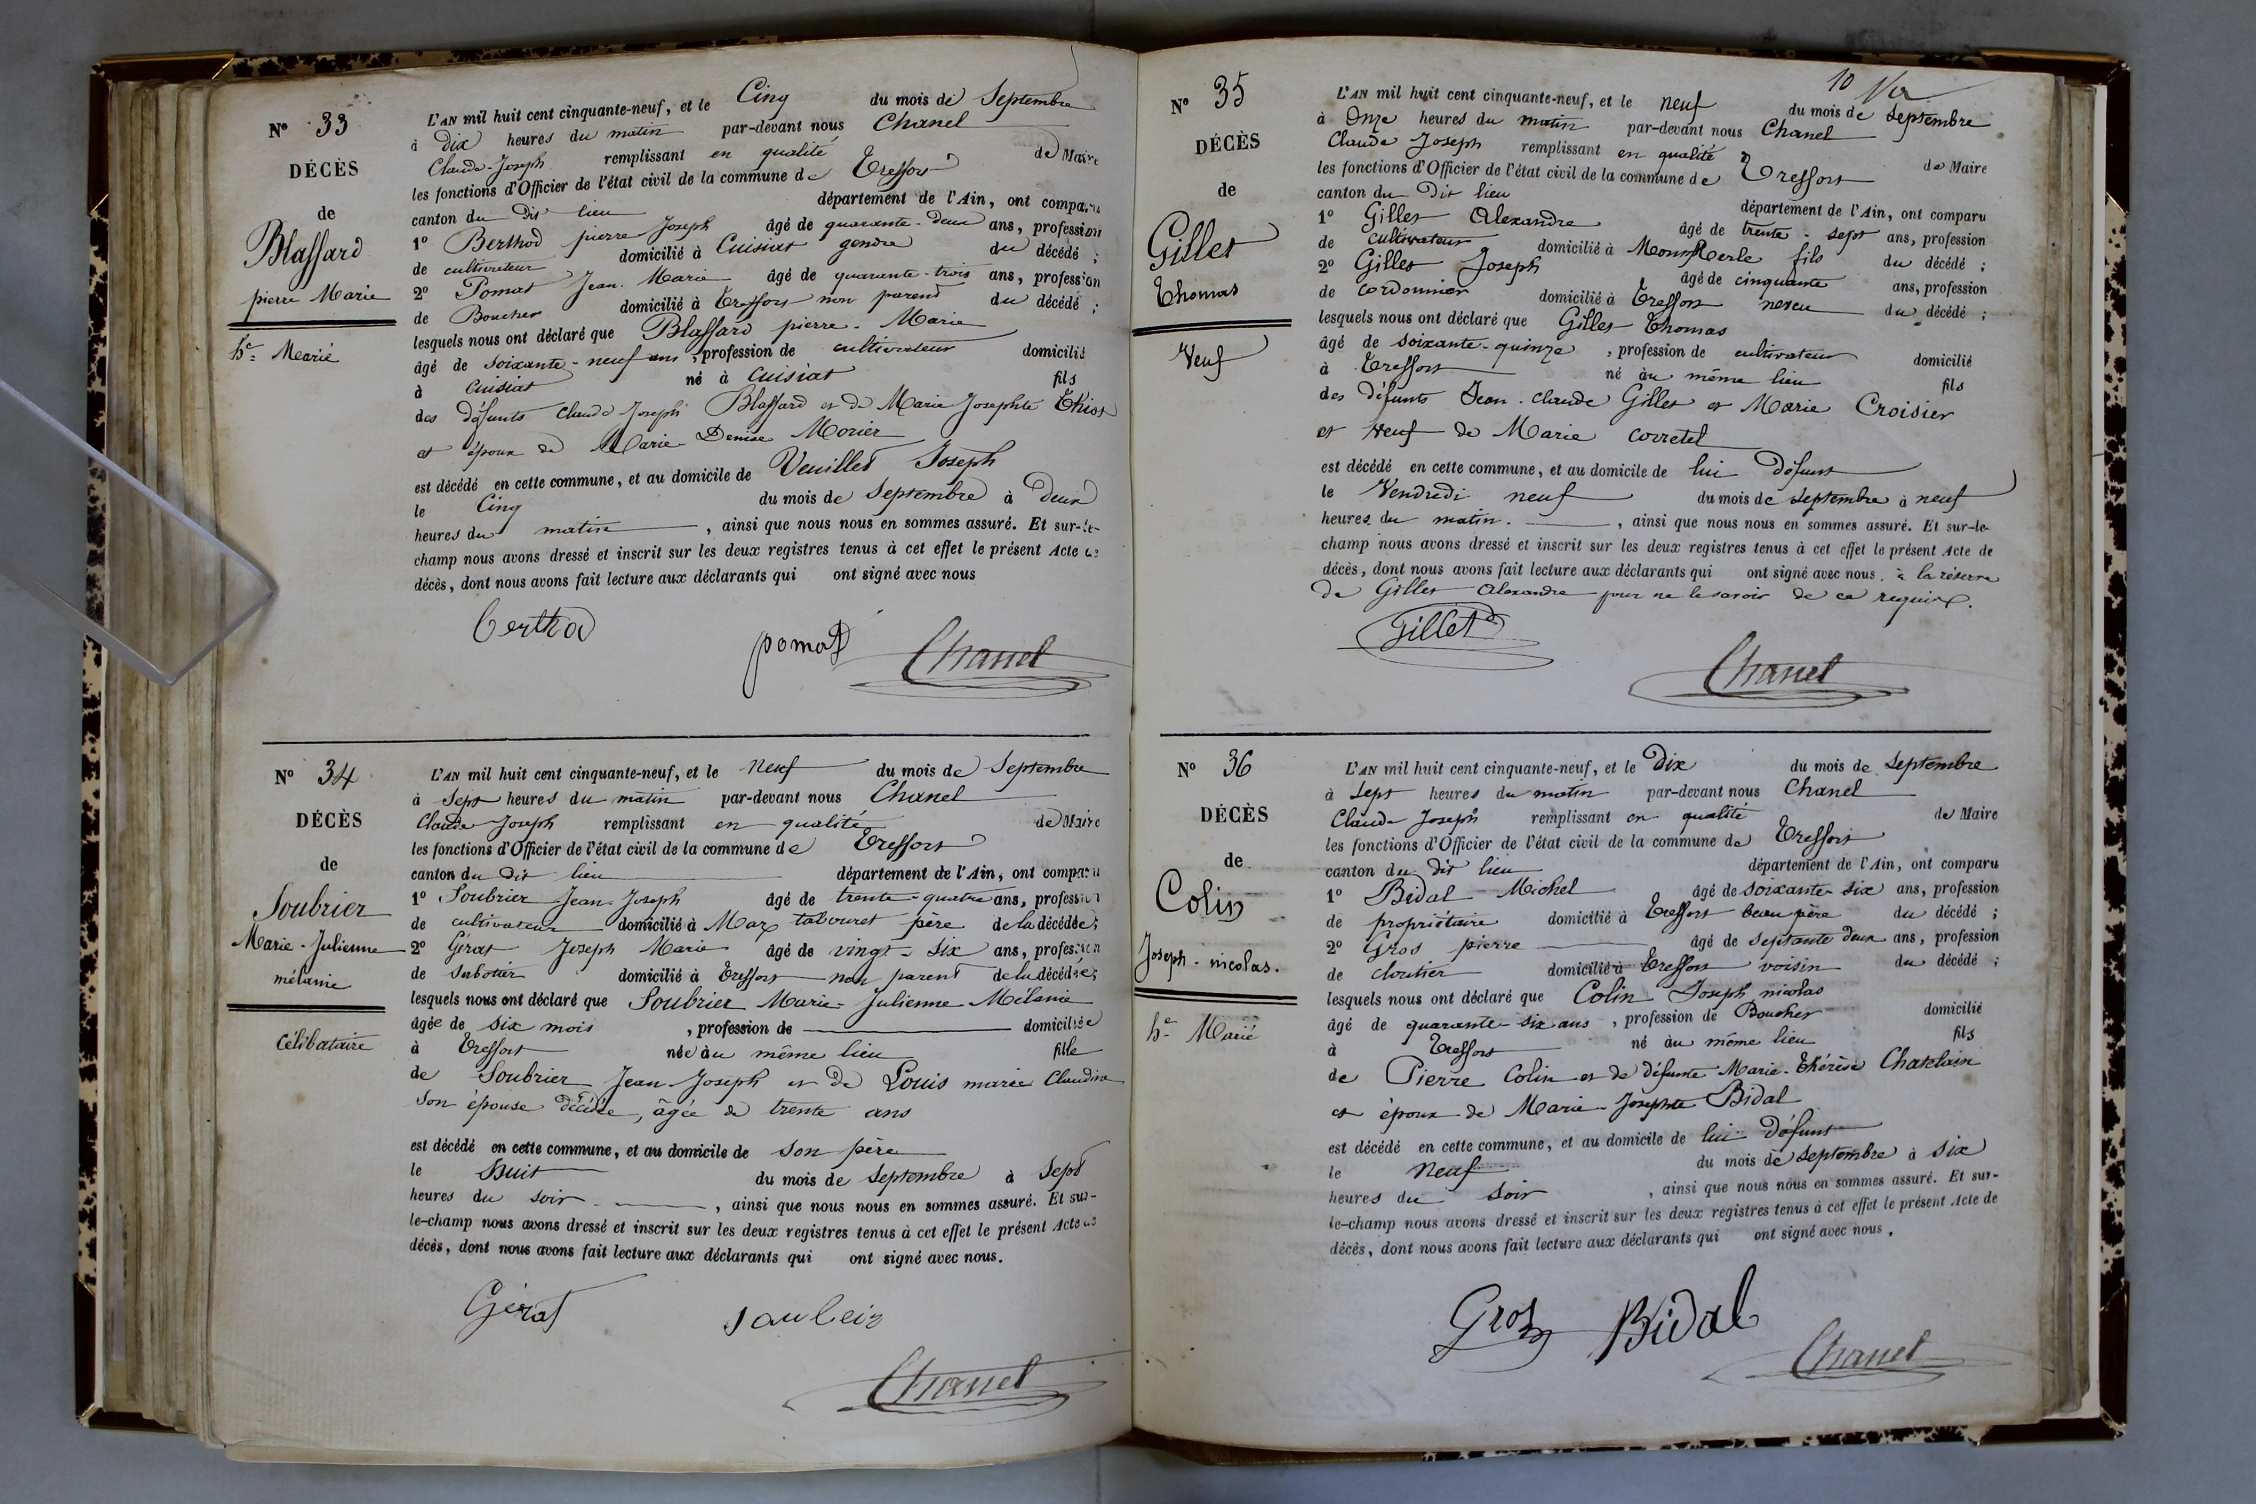 N° 33
DÉCÈS
de
Blassard
pierre Marie
he Marié
L'AN mil huit cent cinquante-neuf, et le Cinq du mois de Septembre
à Dix heures du matin par-devant nous Chanel
Claude Joseph remplissant en qualité de Maire
les fonctions d'Officier de l'état civil de la commune de Treffort
canton du Dit lieu département de l'Ain, ont comparu
1° Berthod pierre Joseph âgé de quarante-deux ans, profession
de cultivateur domicilié à Cuisiat gendre du décédé ;
2° Pomat Jean-Marie âgé de quarante-trois ans, profession
de Boucher domicilié à Treffort non parent du décédé ;
lesquels nous ont déclaré que Blassard pierre-Marie
âgé de soixante-neuf ans, profession de cultivateur domicilié
à Cuisiat né à Cuisiat fils
des défunts Claude Joseph Blassard et de Marie Josephte
et époux de Marie Denise Morier
est décédé en cette commune, et au domicile de Veuillet Joseph
le Cinq du mois de Septembre à Deux
heures du matin, ainsi que nous nous en sommes assuré. Et sur-le-
champ nous avons dressé et inscrit sur les deux registres tenus à cet effet le présent Acte de
décès, dont nous avons fait lecture aux déclarants qui ont signé avec nous
berthod
pomat
Chanel
N° 34
DÉCÈS
de
Soubrier
Marie-Julienne
mélanie
Célibataire
L'AN mil huit cent cinquante-neuf, et le neuf du mois de Septembre
à Sept heures du matin par-devant nous Chanel
Claude Joseph remplissant en qualité de Maire
les fonctions d'Officier de l'état civil de la commune de Treffort
canton du Dit lieu département de l'Ain, ont comparu
1° Soubrier Jean-Joseph âgé de trente-quatre ans, profession
de cultivateur domicilié à Max tabouret père de la décédée ;
2° Gérat Joseph Marie âgé de vingt-six ans, profession
de sabotier domicilié à Treffort non parent de la décédée ;
lesquels nous ont déclaré que Soubrier Marie-Julienne Mélanie
âgée de six mois, profession de domiciliée
à Treffort née au même lieu fille
de Soubrier Jean-Joseph et de Louis marie Claudine
son épouse décédée, âgée de trente ans
est décédé en cette commune, et au domicile de son père
le Huit du mois de Septembre à Sept
heures du soir, ainsi que nous nous en sommes assuré. Et sur-
le-champ nous avons dressé et inscrit sur les deux registres tenus à cet effet le présent Acte de
décès, dont nous avons fait lecture aux déclarants qui ont signé avec nous.
Gérat
Chanel
10 Ver
N° 35
DÉCÈS
de
Gillet
Thomas
Veuf
L'AN mil huit cent cinquante-neuf, et le neuf du mois de septembre
à Onze heures du matin par-devant nous Chanel
Claude Joseph remplissant en qualité de Maire
les fonctions d'Officier de l'état civil de la commune de Treffort
canton du Dit lieu département de l'Ain, ont comparu
1° Gillet Alexandre âgé de trente-sept ans, profession
de cultivateur domicilié à Montmerle fils du décédé ;
2° Gillet Joseph âgé de cinquante ans, profession
de cordonnier domicilié à Treffort neveu du décédé ;
lesquels nous ont déclaré que Gillet Thomas
âgé de soixante-quinze, profession de cultivateur domicilié
à Treffort né au même lieu fils
des défunts Jean-Claude Gillet et Marie Croisier
et veuf de Marie corretel
est décédé en cette commune, et au domicile de lui Défunt
le Vendredi neuf du mois de septembre à neuf
heures du matin., ainsi que nous nous en sommes assuré. Et sur-le-
champ nous avons dressé et inscrit sur les deux registres tenus à cet effet le présent Acte de
décès, dont nous avons fait lecture aux déclarants qui ont signé avec nous. à la réserve
de Gillet Alexandre pour ne le savoir de ce requis.
Gillet
Chanel
N° 36
DÉCÈS
de
Colin
Joseph-nicolas.
he Marié
L'AN mil huit cent cinquante-neuf, et le Dix du mois de septembre
à sept heures du matin par-devant nous Chanel
Claude Joseph remplissant en qualité de Maire
les fonctions d'Officier de l'état civil de la commune de Treffort
canton du dit lieu département de l'Ain, ont comparu
1° Bidal Michel âgé de soixante-six ans, profession
de propriétaire domicilié à Treffort beau père du décédé ;
2° Gros pierre âgé de septante deux ans, profession
de cloutier domicilié à Treffort voisin du décédé ;
lesquels nous ont déclaré que Colin Joseph nicolas
âgé de quarante-six ans, profession de Boucher domicilié
à Treffort né au même lieu fils
de Pierre Colin et de défunte Marie-Thérèse Chatelain
et époux de Marie-Josephte Bidal
est décédé en cette commune, et au domicile de lui Défunt
le neuf du mois de septembre à six
heures du soir, ainsi que nous nous en sommes assuré. Et sur-
le-champ nous avons dressé et inscrit sur les deux registres tenus à cet effet le présent Acte de
décès, dont nous avons fait lecture aux déclarants qui ont signé avec nous.
Gros Bidal
Chanel